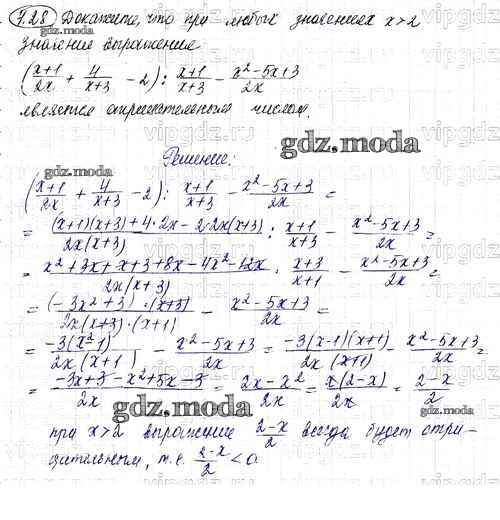 7.28 Докажите, что при любых значениях x>2
значение выражения
gdz.moda
(x+1/2x + 4/x+3 - 2) : x+1/x+3 - x²-5x+3/2x
является отрицательным числом.
gdz.moda
Решение.
gdz.moda
(x+1/2x + 4/x+3 - 2) : x+1/x+3 - x²-5x+3/2x =
= (x+1)(x+3)+4·2x-2·2x(x+3)/2x(x+3) : x+1/x+3 - x²-5x+3/2x =
= x²+3x+x+3+8x-4x²-12x/2x(x+3) · x+3/x+1 - x²-5x+3/2x =
= (-3x²+3)·(x+3)/2x(x+3)·(x+1) - x²-5x+3/2x =
= -3(x²-1)/2x(x+1) - x²-5x+3/2x = -3(x-1)(x+1)/2x(x+1) - x²-5x+3/2x =
= -3x+3-x²+5x-3/2x = 2x-x²/2x = x(2-x)/2x = 2-x/2
gdz.moda
gdz.moda
при x>2 выражение 2-x/2 всегда будет отри-
цательным, т.е. 2-x/2 < 0.